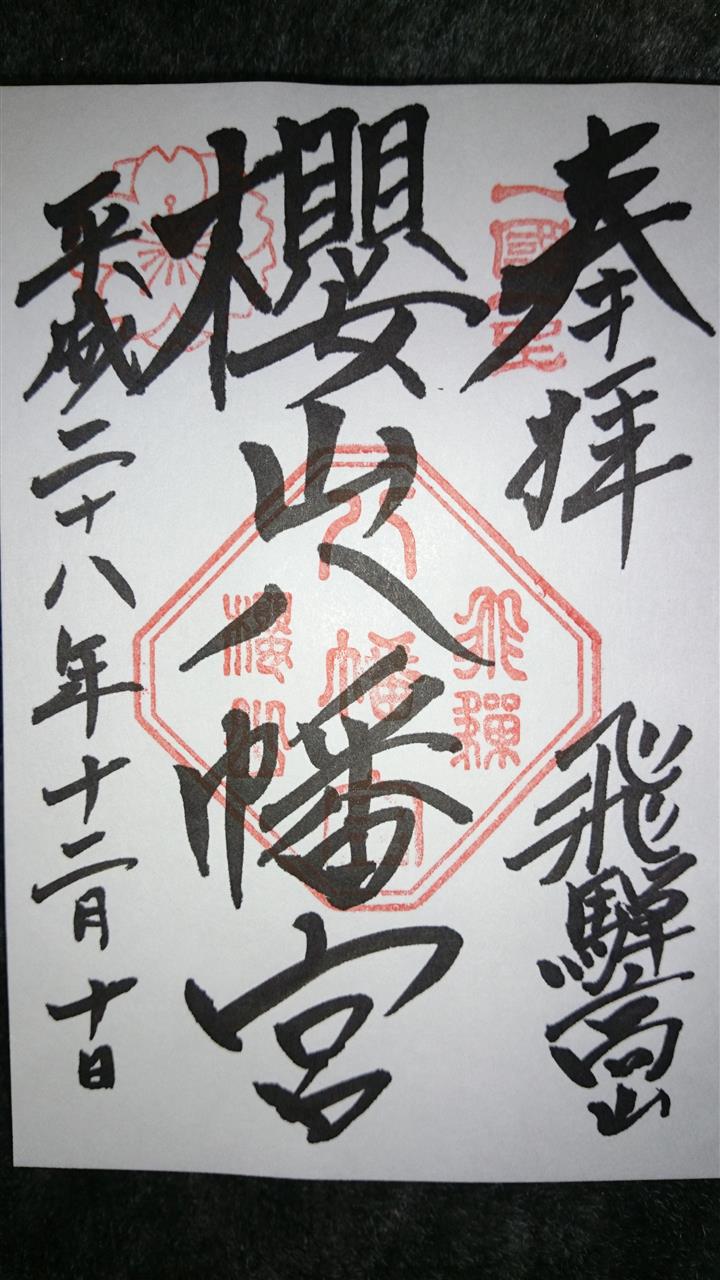 奉拝
飛騨高山
櫻山八幡宮
平成二十八年十二月十日
一國一宮
飛騨
八幡宮
櫻山